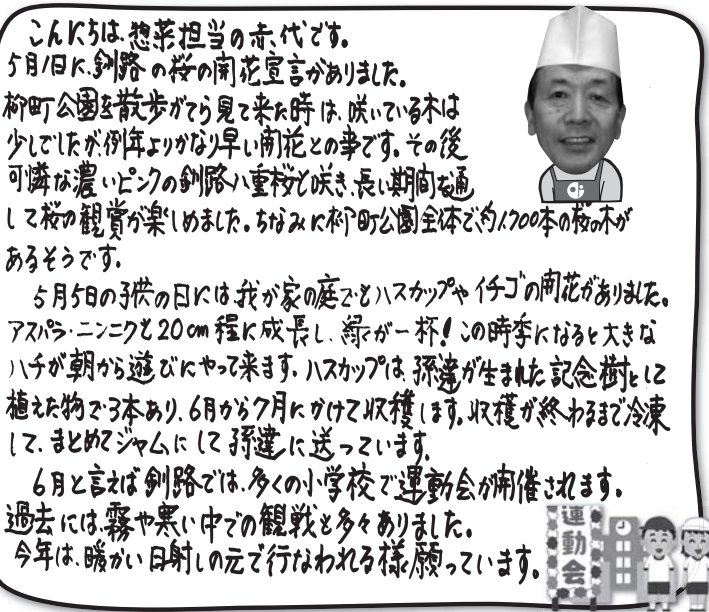 こんにちは、惣菜担当の赤代です。
5月1日に、釧路の桜の開花宣言がありました。
柳町公園を散歩がてら見て来た時は、咲いている木は
少しでしたが、例年よりかなり早い開花との事です。その後
可憐な濃いピンクの釧路八重桜も咲き、長い期間を通
して桜の観賞が楽しめました。ちなみに柳町公園全体で、約1,700本の桜の木が
あるそうです。
5月5日の子供の日には、我が家の庭でもハスカップやイチゴの開花がありました。
アスパラ・ニンニクも20cm程に成長し、緑が一杯!この時季になると大きな
ハチが朝から遊びにやって来ます。ハスカップは、孫達が生まれた記念樹として
植えた物で3本あり、6月から7月にかけて収穫します。収穫が終わるまで冷凍
して、まとめてジャムにして孫達に送っています。
6月と言えば釧路では、多くの小学校で運動会が開催されます。
過去には、霧や寒い中での観戦も多々ありました。
今年は、暖かい日射しの元で行なわれる様願っています。
運動会